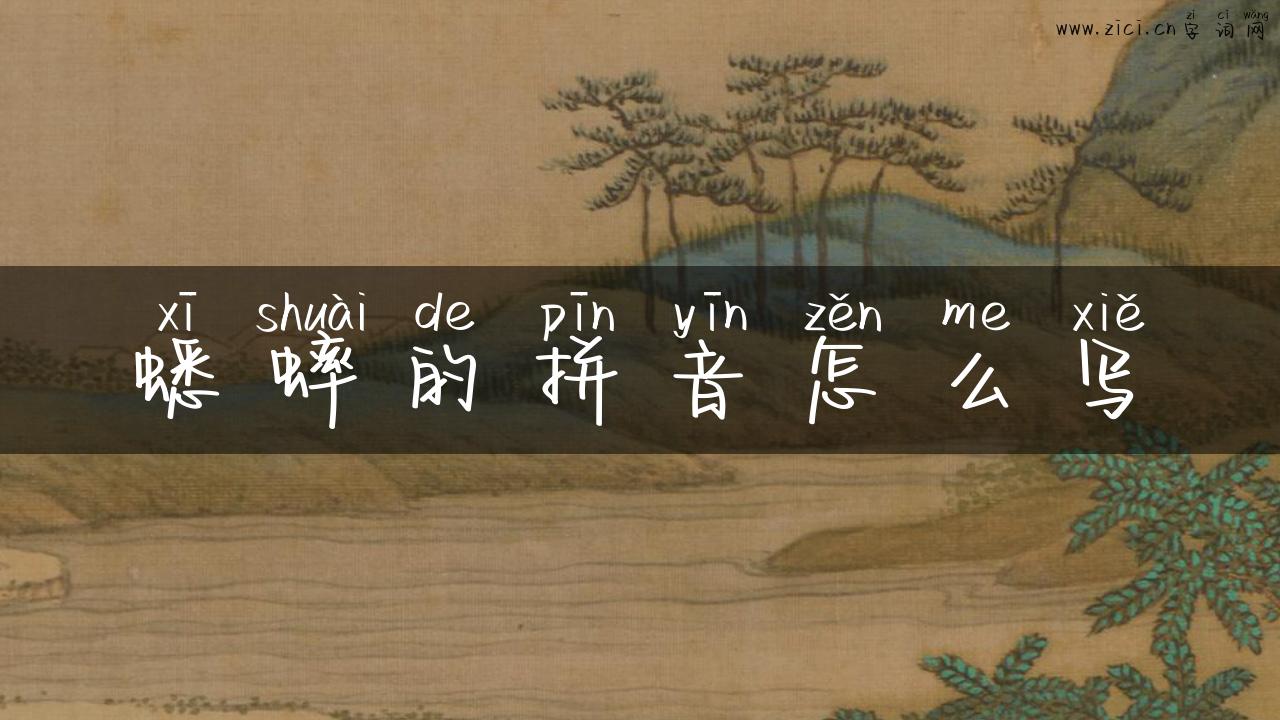 zì cí wǎng
www.zici.cn 字词网
xī shuài de pīn yīn zěn me xiě
蟋蟀的拼音怎么写